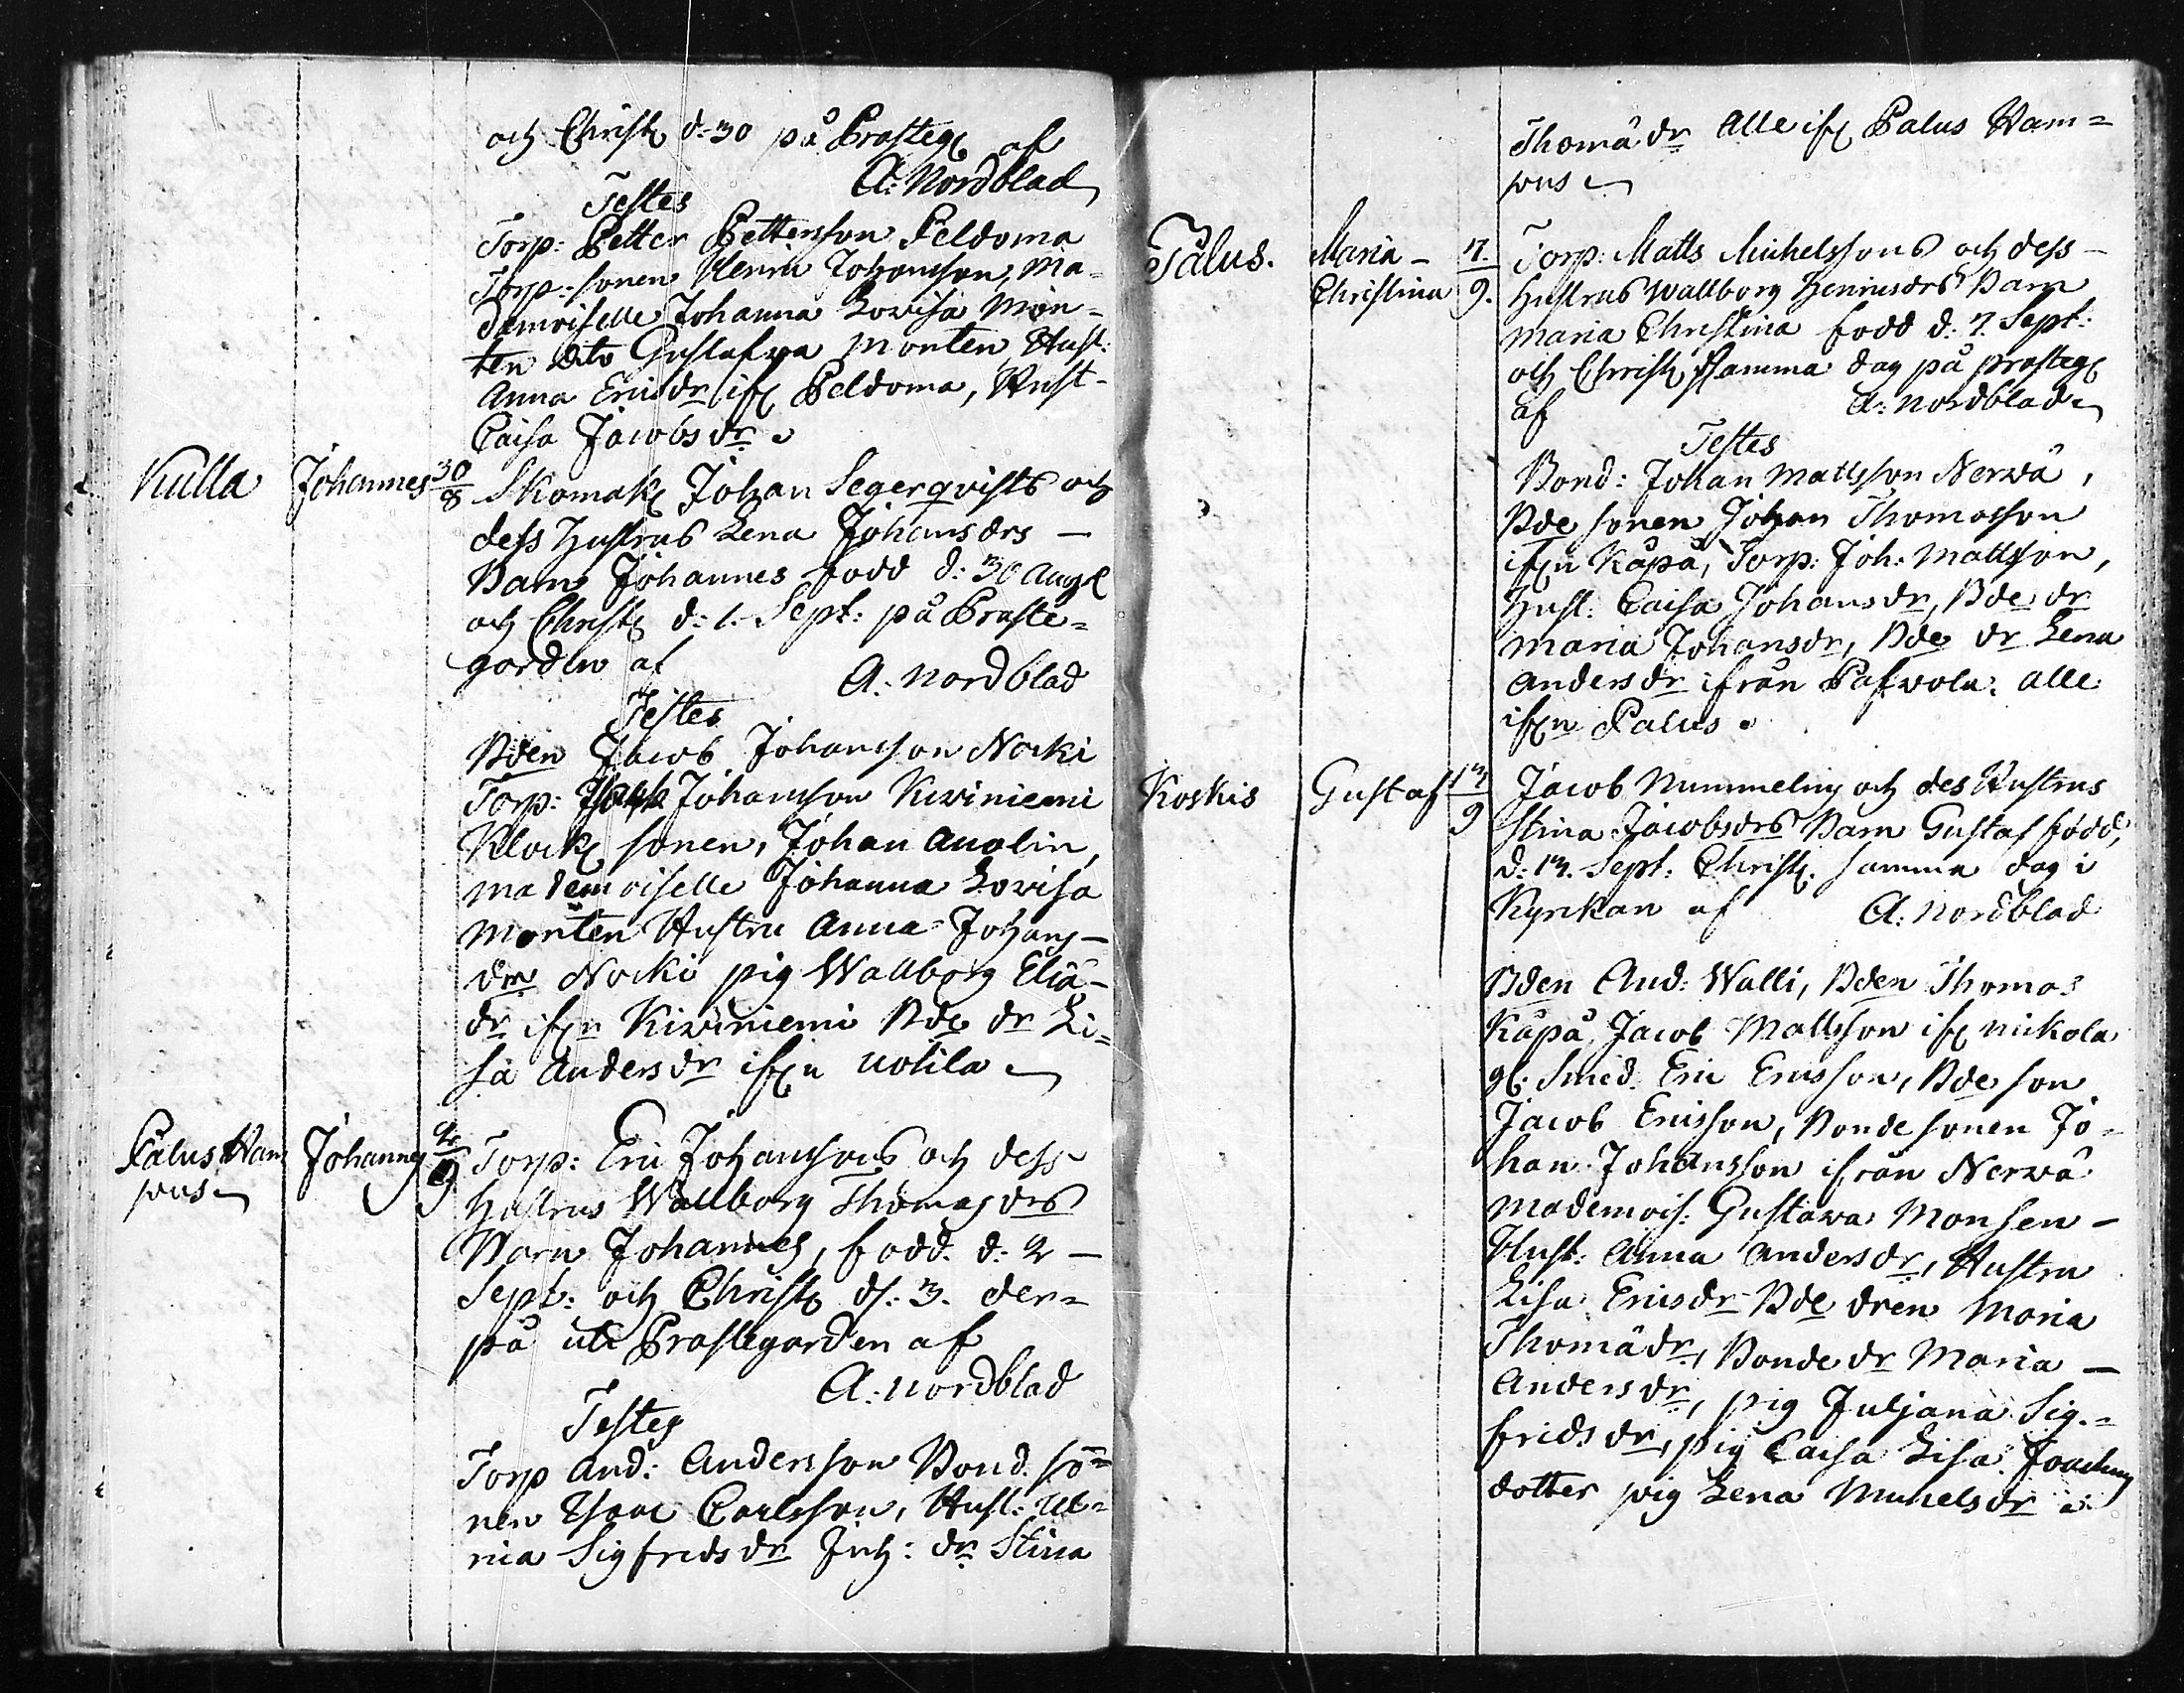 och Christ d. 30 på Prosteg af
A: Nordblad
Testes
Torp: Petter Pettersson Peldoma
Torp: sonen Henric Johansson, Ma-
demoiselle Johanna Lovisa Mon-
ten dito Gustafva Monten Hust:
Anna Ericsdr if Peldoma, Hust-
Caisa Jacobsdr.
Kulla Johannes 30/8 Skomak Johan Segerqvists och
dess Hustrus Lena Johansdrs —
Barn Johannes född d: 30 Aug
och Christ d: 1. Sept: på Proste=
gorden af
A: Nordblad
Testes
Bden Jacob Johansson Nocki
Torp: Johansson Kiviniemi
Klock sonen, Johan Anolin,
mademoiselle Johanna Lovisa
Monten Hustru Anna Johans-
dr Nocki pig Wallborg Eliä-
dr ifn Kiviniemi Bde dr Li=
sa Andersdr ifn Uotila
Palus Ham
pus Johannes 2/9 Torp: Eric Johanssons och dess
Hustrus Wallborg Thomasdrs
Barn Johannes, född d: 2 —
Sept: och Christ d: 3. der=
på uti Prostegorden af
A: Nordblad
Testes
Torp And: Andersson Bond. so=
nen Isaac Carlsson, Hust: Ul=
rica Sigfredsdr Inh: dr Stina
Thomädr Alle if Palus Ham=
pus
Palus. Maria - 7. Torp: Matts Michelssons och dess —
Christina 9. Hustrus Wallborg Henricsdrs Barn
Maria Christina född d: 7. Sept:
och Christ samma dag på prosteg
af A: Nordblad
Testes
Bond: Johan Mattsson Nerwä,
Bde sonen Johan Thomasson
ifn Käpä, Torp: Joh: Mattsson,
Hust: Caisa Johansdr, Bde dr
Maria Johansdr, Bde dr Lena
Andersdr ifrån Pafvola: alle
ifn Palus.
Koskis Gustaf 13/9 Jacob Nummelins och des Hustrus
Stina Jacobsdrs Barn Gustaf född,
d: 13. Sept: Christ. samma dag i
Kyrkan af A: Nordblad
Bden And: Walli, Bden Thomas
Käpä, Jacob Mattsson if Mickola
gl: Smed. Eric Ericsson, Bde son
Jacob Ericsson, Bonde sonen Jo-
han Johansson ifrån Nerwä
Mademois: Gustava Monsen —
Hust: Anna Andersdr, Hustru
Lisa Ericsdr Bde dren Maria
Thomädr, Bonde dr Maria —
Andersdr, pig Juljana Sig.=
fridsdr, pig Caisa Lisa Joachims
dotter pig Lena Michelsdr